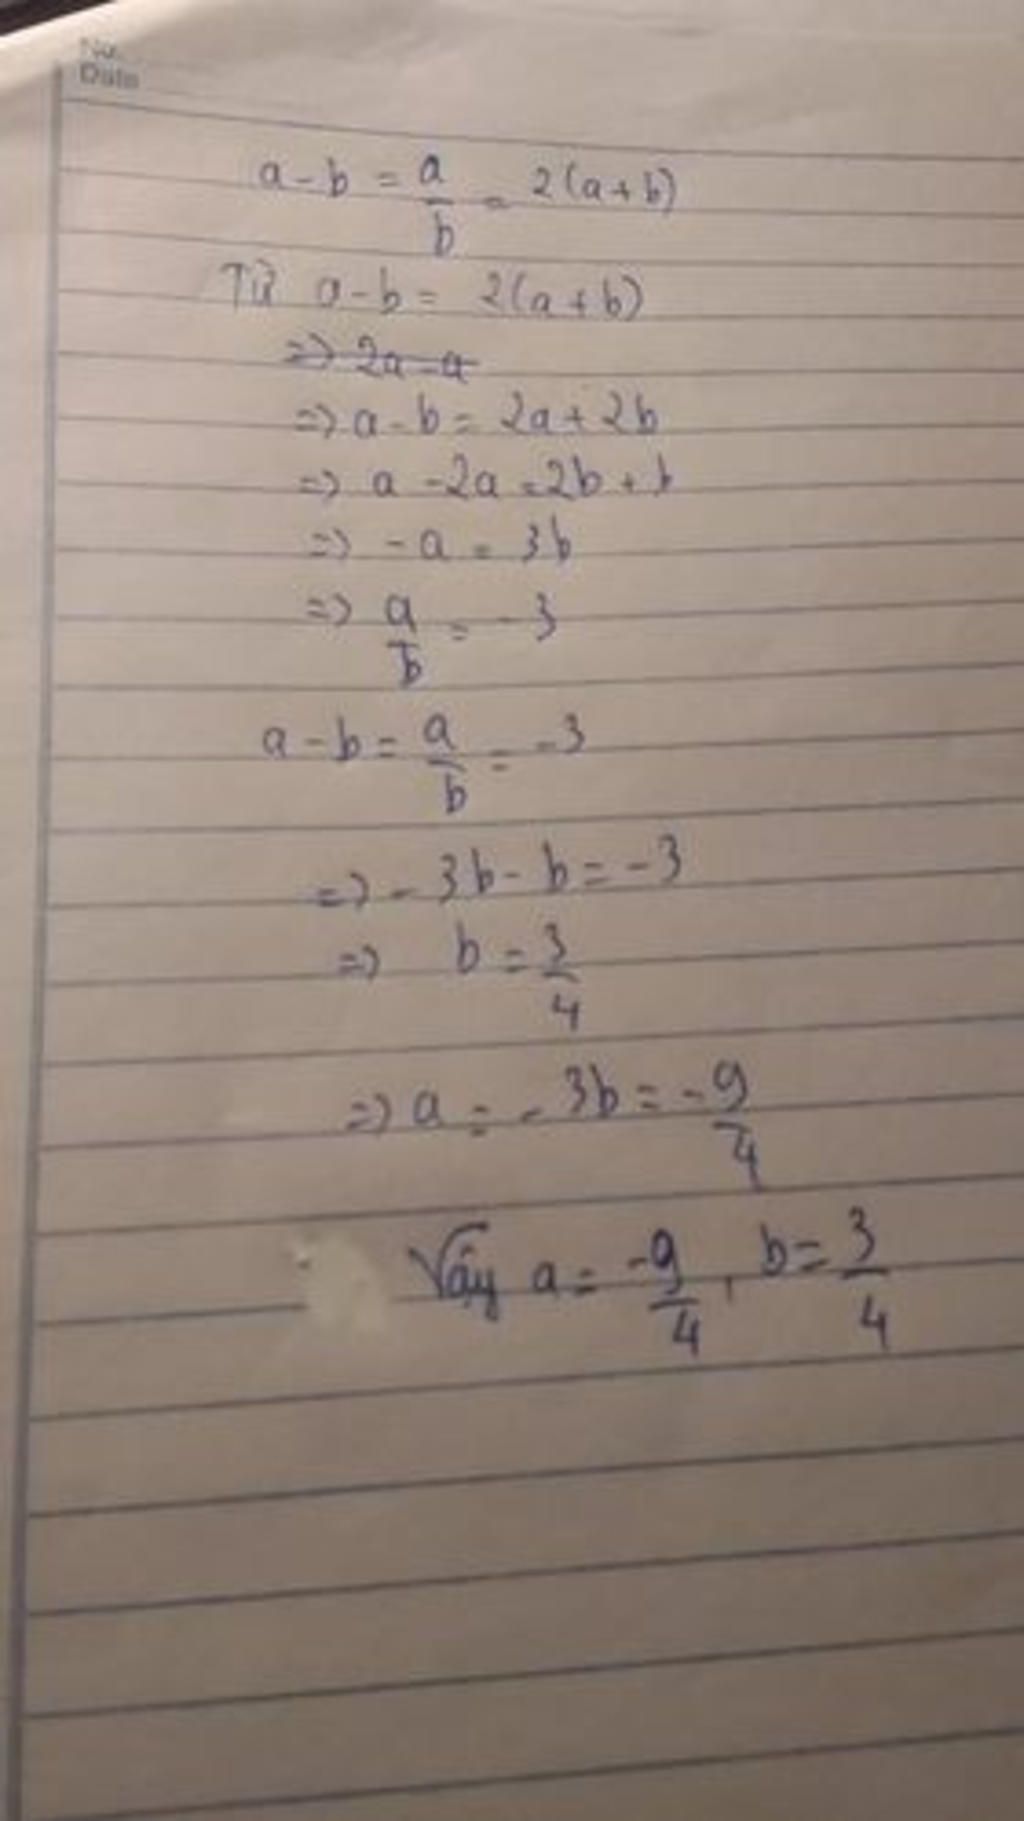 No.
Date
a - b = a/b = 2(a + b)
Từ a - b = 2(a + b)
=> 2a - a
=> a - b = 2a + 2b
=> a - 2a = 2b + b
=> - a = 3b
=> a/b = - 3
a - b = a/b = - 3
=> - 3b - b = - 3
=> b = 3/4
=> a = - 3b = - 9/4
Vậy a = -9/4, b = 3/4